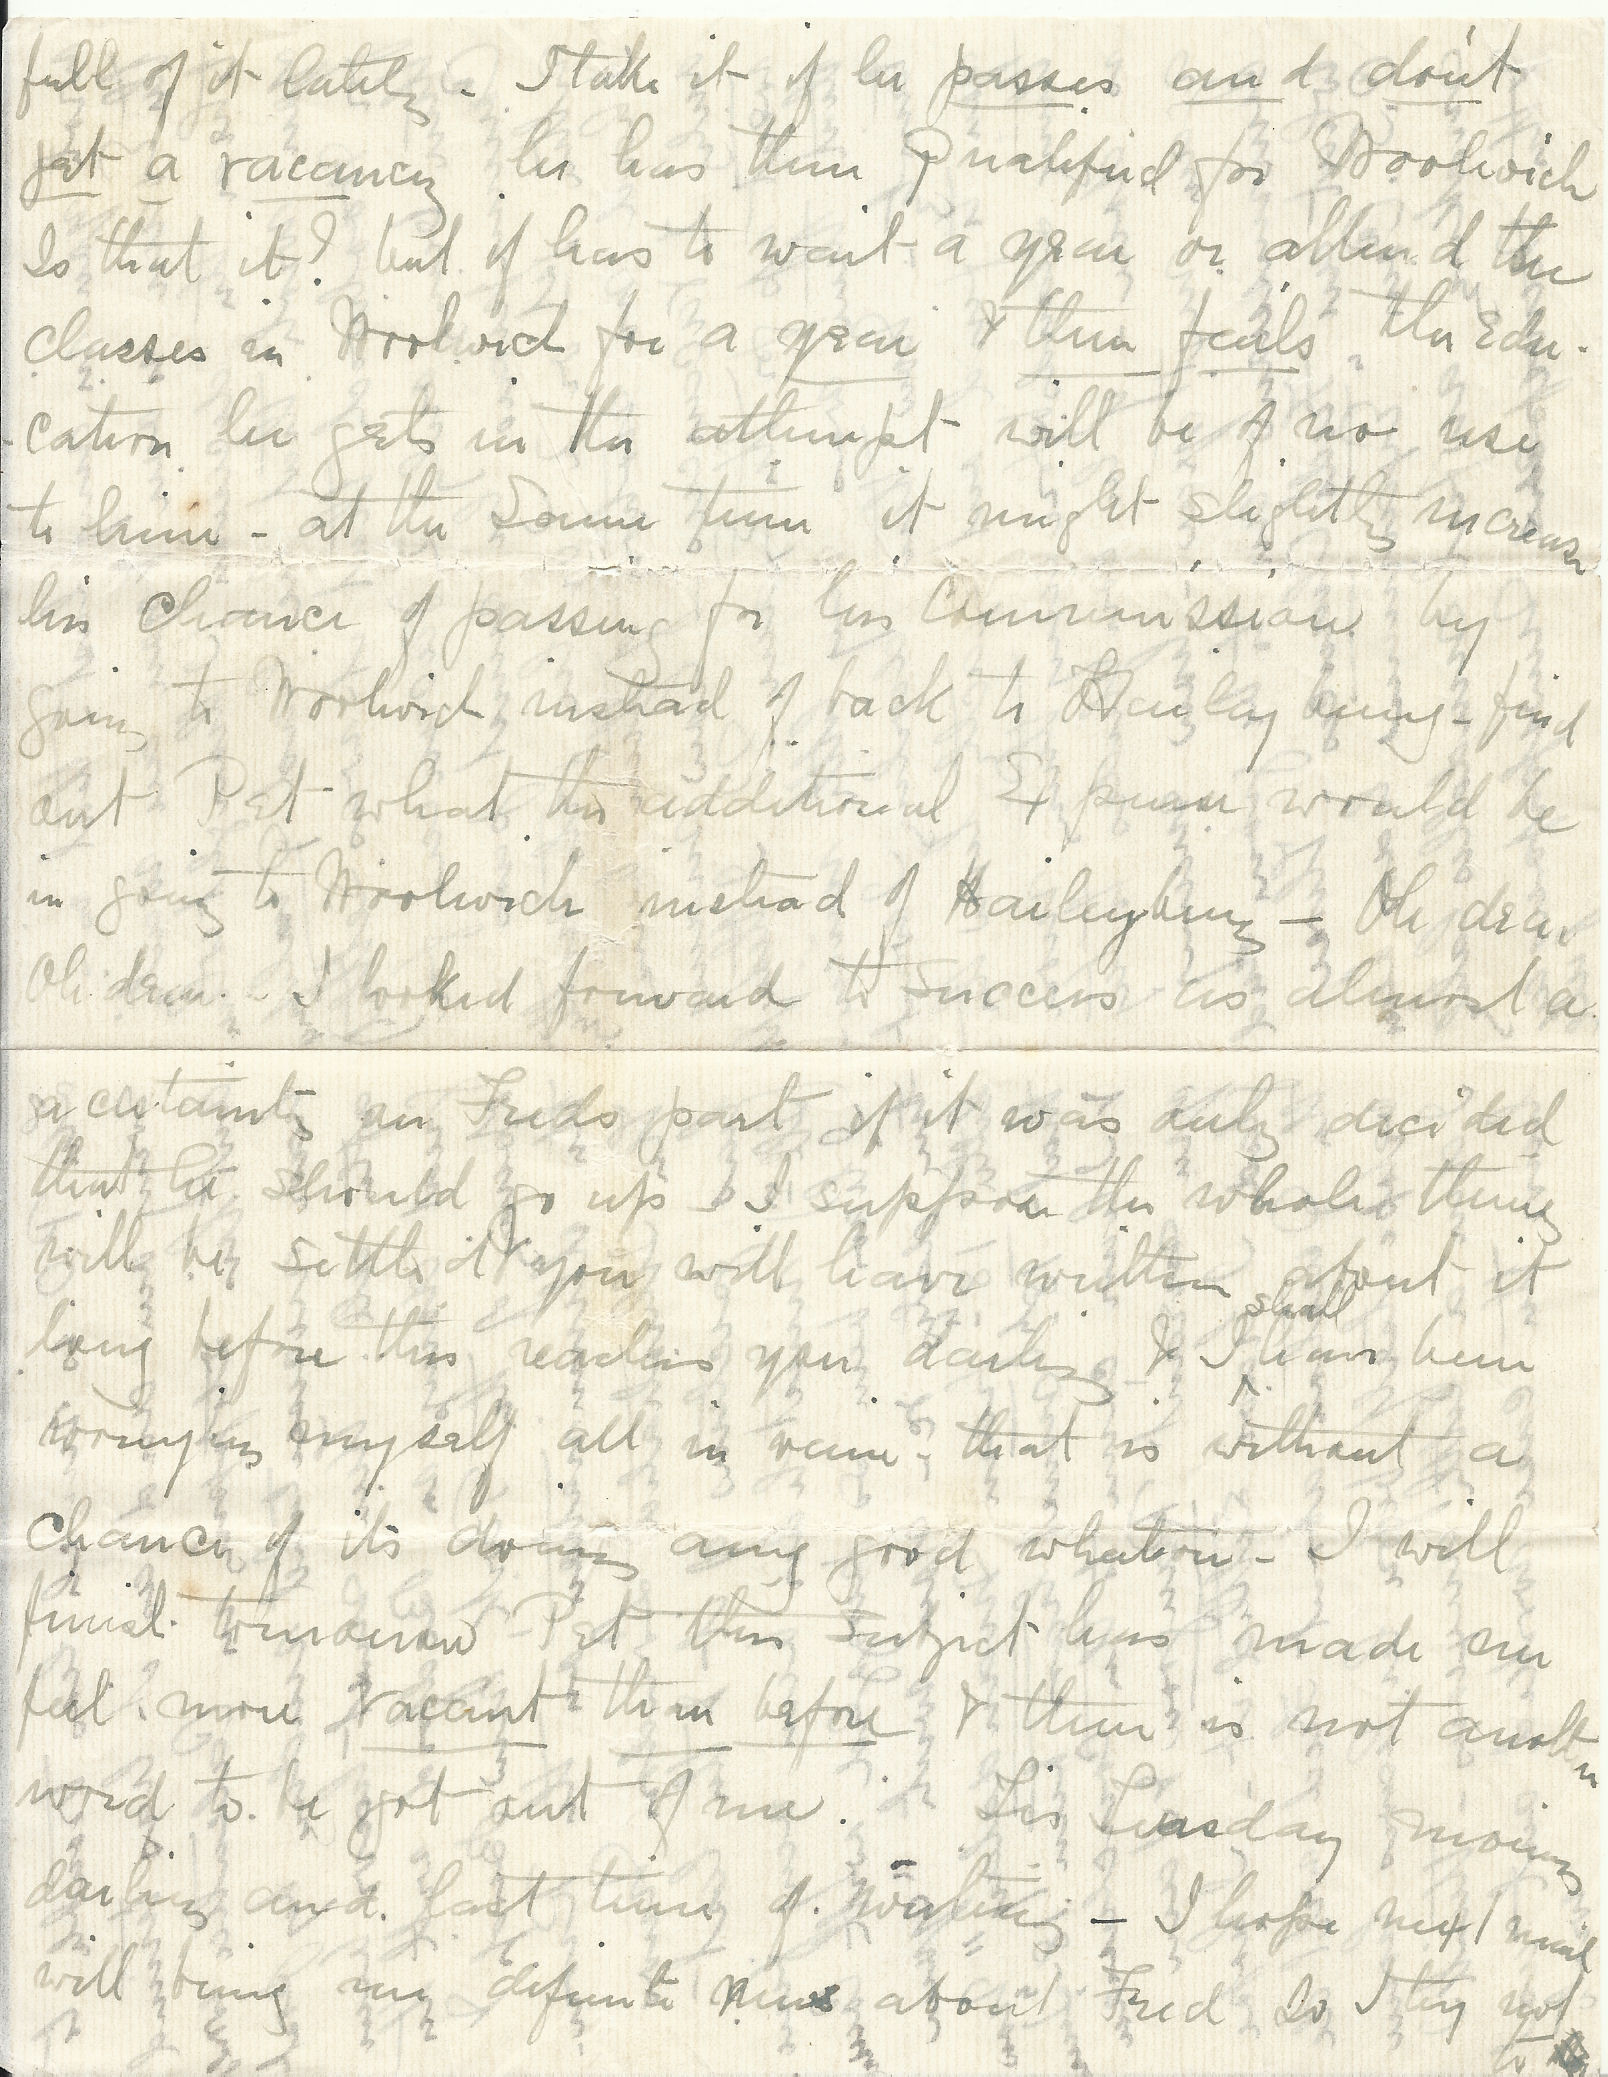 full of it lately - I take it if he passes and don't
get a vacancy he has then Qualified for Woolwich
Is that it? but if has to wait a year or attend the
classes in Woolwich for a year & then fails the Edu-
-cation he gets in the attempt will be of no use
to him - at the Same time it might slightly increase
his chance of passing for his Commission by
going to Woolwich instead of back to Haileybury - find
out Pet what the additional Expense would be
in going to Woolwich instead of Haileybury - Oh dear
Oh dear - I looked forward to Success as almost a
a certainty on Freds part if it was only decided
that he should go up - I suppose the whole thing
will be settled & you will have written about it
long before this reaches you darling & I shall have been
worrying myself all in vain - that is without a
chance of its doing any good whatever - I will
finish tomorrow Pet this Subject has made me
feel more vacant than before & there is not another
word to be got out of me. Tis Tuesday morning
darling and last time of writing - I hope next mail
will bring me definite news about Fred so I try not
to